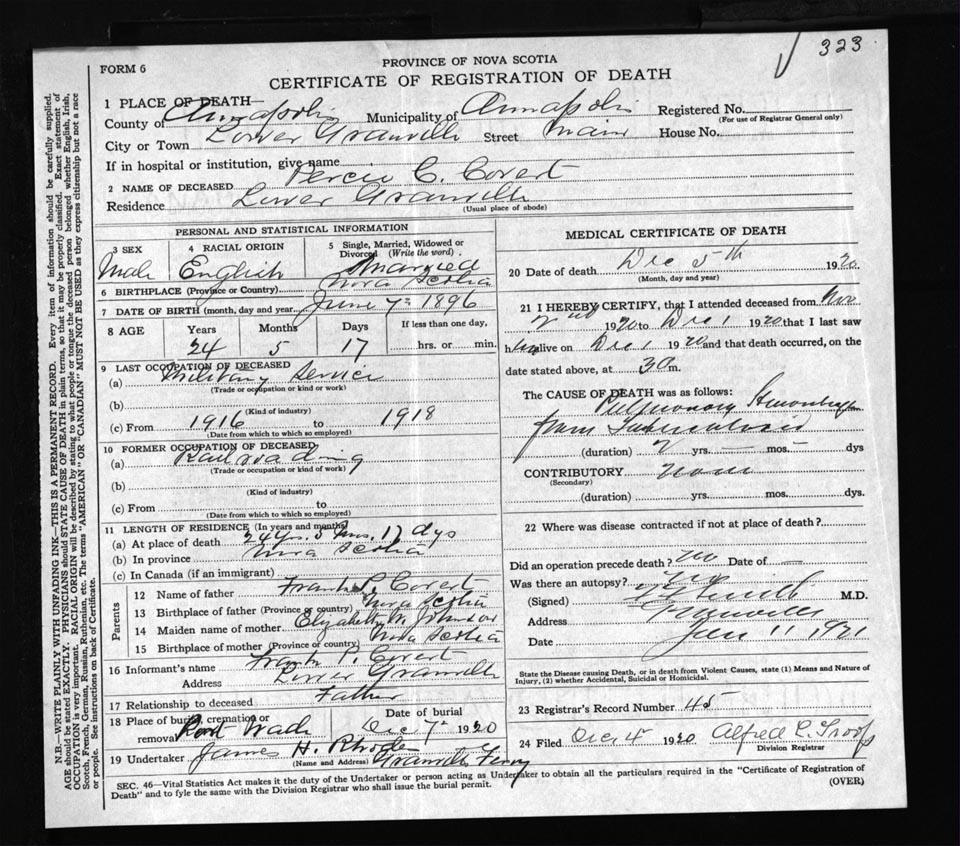 323
FORM 6
PROVINCE OF NOVA SCOTIA
CERTIFICATE OF REGISTRATION OF DEATH
1 PLACE OF DEATH—
County of Annapolis Municipality of Annapolis Registered No.
(For use of Registrar General only)
City or Town Lower Granville Street Main House No.
If in hospital or institution, give name
2 NAME OF DECEASED Percie C. Covert
Residence Lower Granville
(Usual place of abode)
PERSONAL AND STATISTICAL INFORMATION
3 SEX Male
4 RACIAL ORIGIN English
5 Single, Married, Widowed or Divorced (Write the word). Married
6 BIRTHPLACE (Province or Country) Nova Scotia
7 DATE OF BIRTH (month, day and year) June 7th 1896
8 AGE Years Months Days If less than one day,
24 5 17 hrs. or min.
9 LAST OCCUPATION OF DECEASED
(a) Military Service
(Trade or occupation or kind or work)
(b)
(Kind of industry)
(c) From 1916 to 1918
(Date from which to which so employed)
10 FORMER OCCUPATION OF DECEASED
(a) Railroading
(Trade or occupation or kind of work)
(b)
(Kind of industry)
(c) From to
(Date from which to which so employed)
11 LENGTH OF RESIDENCE (In years and months)
(a) At place of death 24 yrs. 5 mos. 17 dys
(b) In province Nova Scotia
(c) In Canada (if an immigrant)
Parents
12 Name of father Frank P. Covert
13 Birthplace of father (Province or country) Nova Scotia
14 Maiden name of mother Elizabeth M. Johnson
15 Birthplace of mother (Province or country) Nova Scotia
16 Informant's name Frank P. Covert
Address Lower Granville
17 Relationship to deceased Father
18 Place of burial, cremation or removal Port Wade
Date of burial Dec 7th 1920
19 Undertaker James H. Rhodes Granville Ferry
(Name and Address)
MEDICAL CERTIFICATE OF DEATH
20 Date of death Dec 5th 1920.
(Month, day and year)
21 I HEREBY CERTIFY, that I attended deceased from Nov
2nd 1920 to Dec 1 1920 that I last saw
him alive on Dec 1 1920 and that death occurred, on the
date stated above, at 3 a m.
The CAUSE OF DEATH was as follows:
Pulmonary Hemorrhage
from Tuberculosis
(duration) 2 yrs. — mos. — dys
CONTRIBUTORY none
(Secondary)
(duration) yrs. mos. dys.
22 Where was disease contracted if not at place of death?
Did an operation precede death? no Date of —
Was there an autopsy?
(Signed) M.D.
Address Granville
Date Jan 11 1921
State the Disease causing Death, or in death from Violent Causes, state (1) Means and Nature of
Injury, (2) whether Accidental, Suicidal or Homicidal.
23 Registrar's Record Number 45
24 Filed Dec 4 1920 Alfred L. Troop
Division Registrar
SEC. 46—Vital Statistics Act makes it the duty of the Undertaker or person acting as Undertaker to obtain all the particulars required in the "Certificate of Registration of
Death" and to fyle the same with the Division Registrar who shall issue the burial permit. (OVER)
N.B.—WRITE PLAINLY WITH UNFADING INK—THIS IS A PERMANENT RECORD. Every item of information should be carefully supplied.
AGE should be stated EXACTLY. PHYSICIANS should STATE CAUSE OF DEATH in plain terms, so that it may be properly classified. Exact statement of
OCCUPATION is very important. RACIAL ORIGIN will be described by stating to what people or tongue the deceased person belonged, whether English, Irish,
Scotch, French, German, Russian, Ruthenian, etc. The terms "AMERICAN" OR "CANADIAN" MUST NOT BE USED as they express citizenship but not a race
or people. See instructions on back of Certificate.